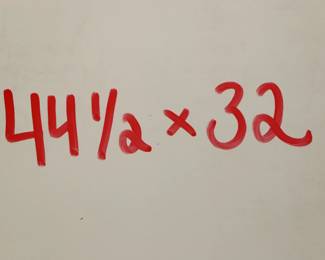 44 1/2 x 32